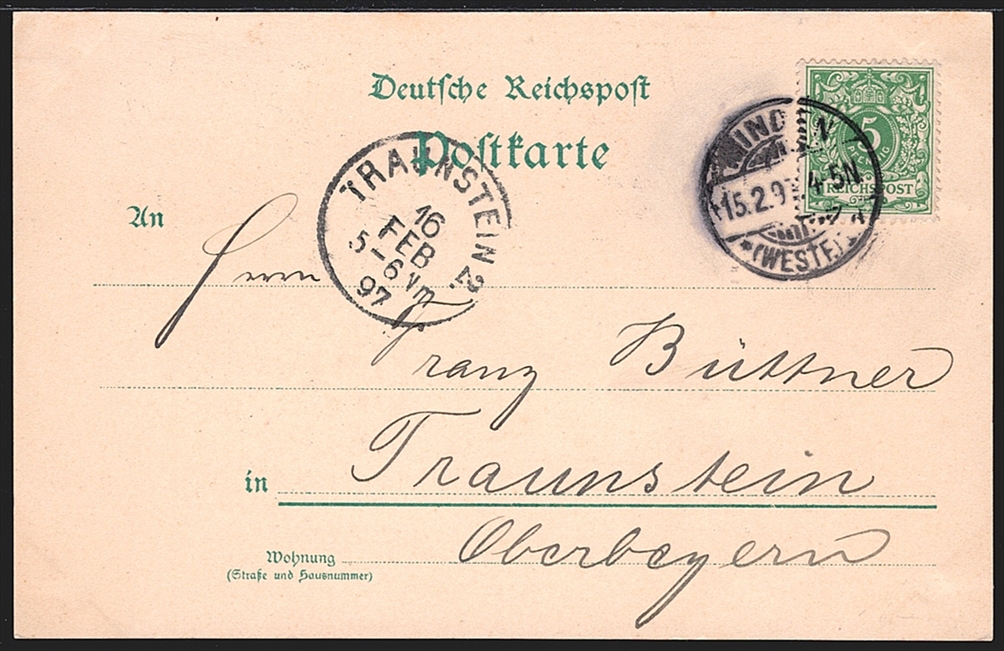 Deutsche Reichspost
Postkarte
5
REICHSPOST
MINDEN
15.2.97. 4-5N.
*(WESTF.)*
TRAUNSTEIN 2.
16
FEB
5-6 Vm
97
An
Herrn
Franz Büttner
in Traunstein
Oberbeyern
Wohnung
(Straße und Hausnummer)